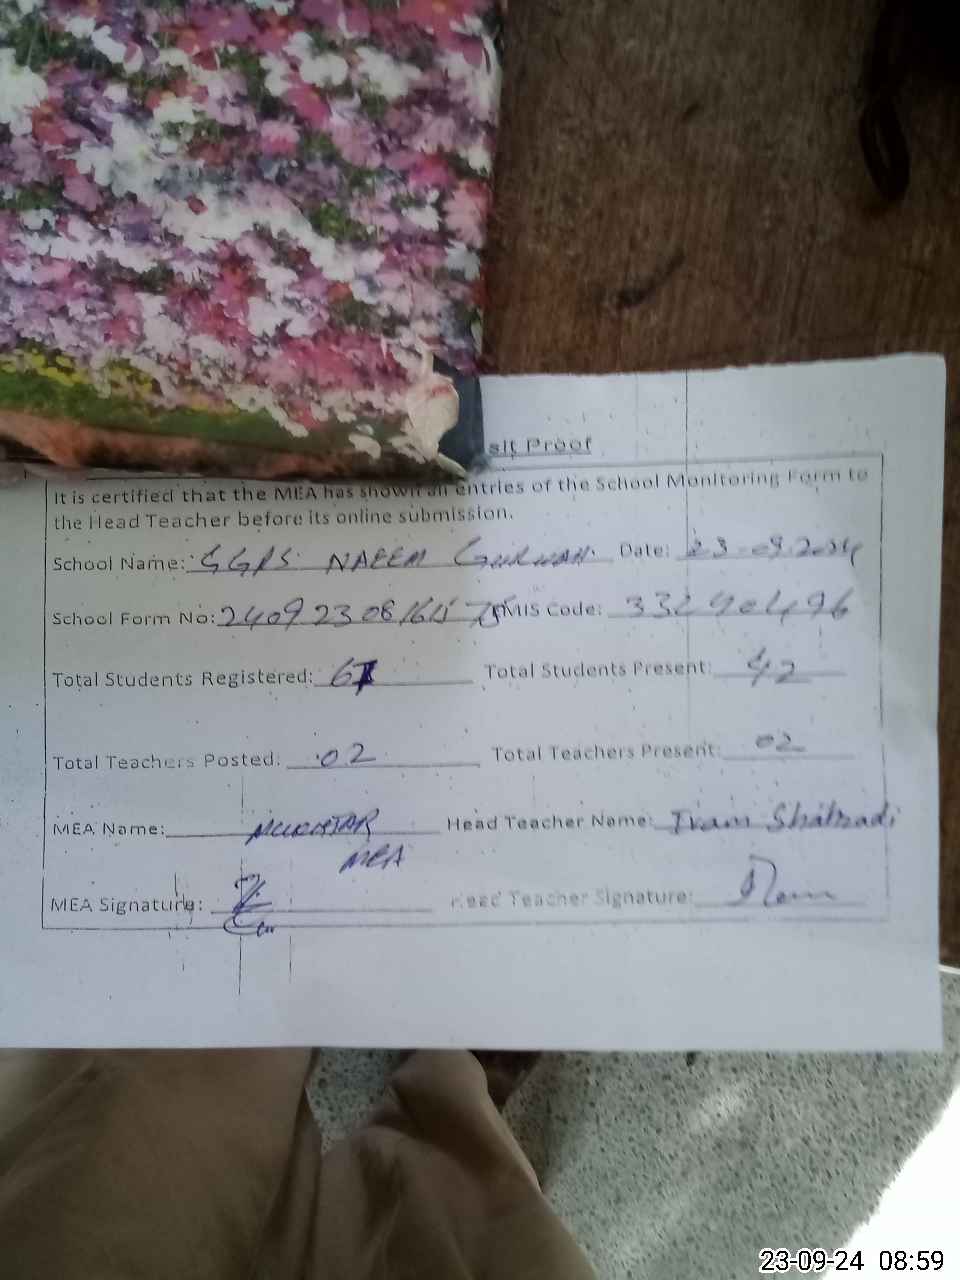 sit Proof
It is certified that the MEA has shown all entries of the School Monitoring Form to
the Head Teacher before its online submission.
School Name: GGPS NAEEM Date: 23-09-2024
School Form No: EMIS Code:
Total Students Registered: Total Students Present: 42
Total Teachers Posted: 02 Total Teachers Present: 02
MEA Name: MUKHTAR Head Teacher Name: Iram Shahzadi
MEA
MEA Signature: Head Teacher Signature: Iram
23-09-24 08:59